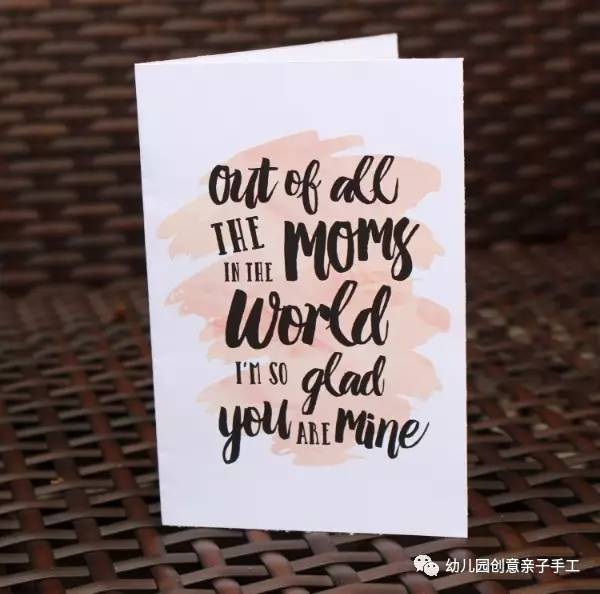 out of all
THE moms
IN THE
World
I'M SO glad
you ARE mine
幼儿园创意亲子手工